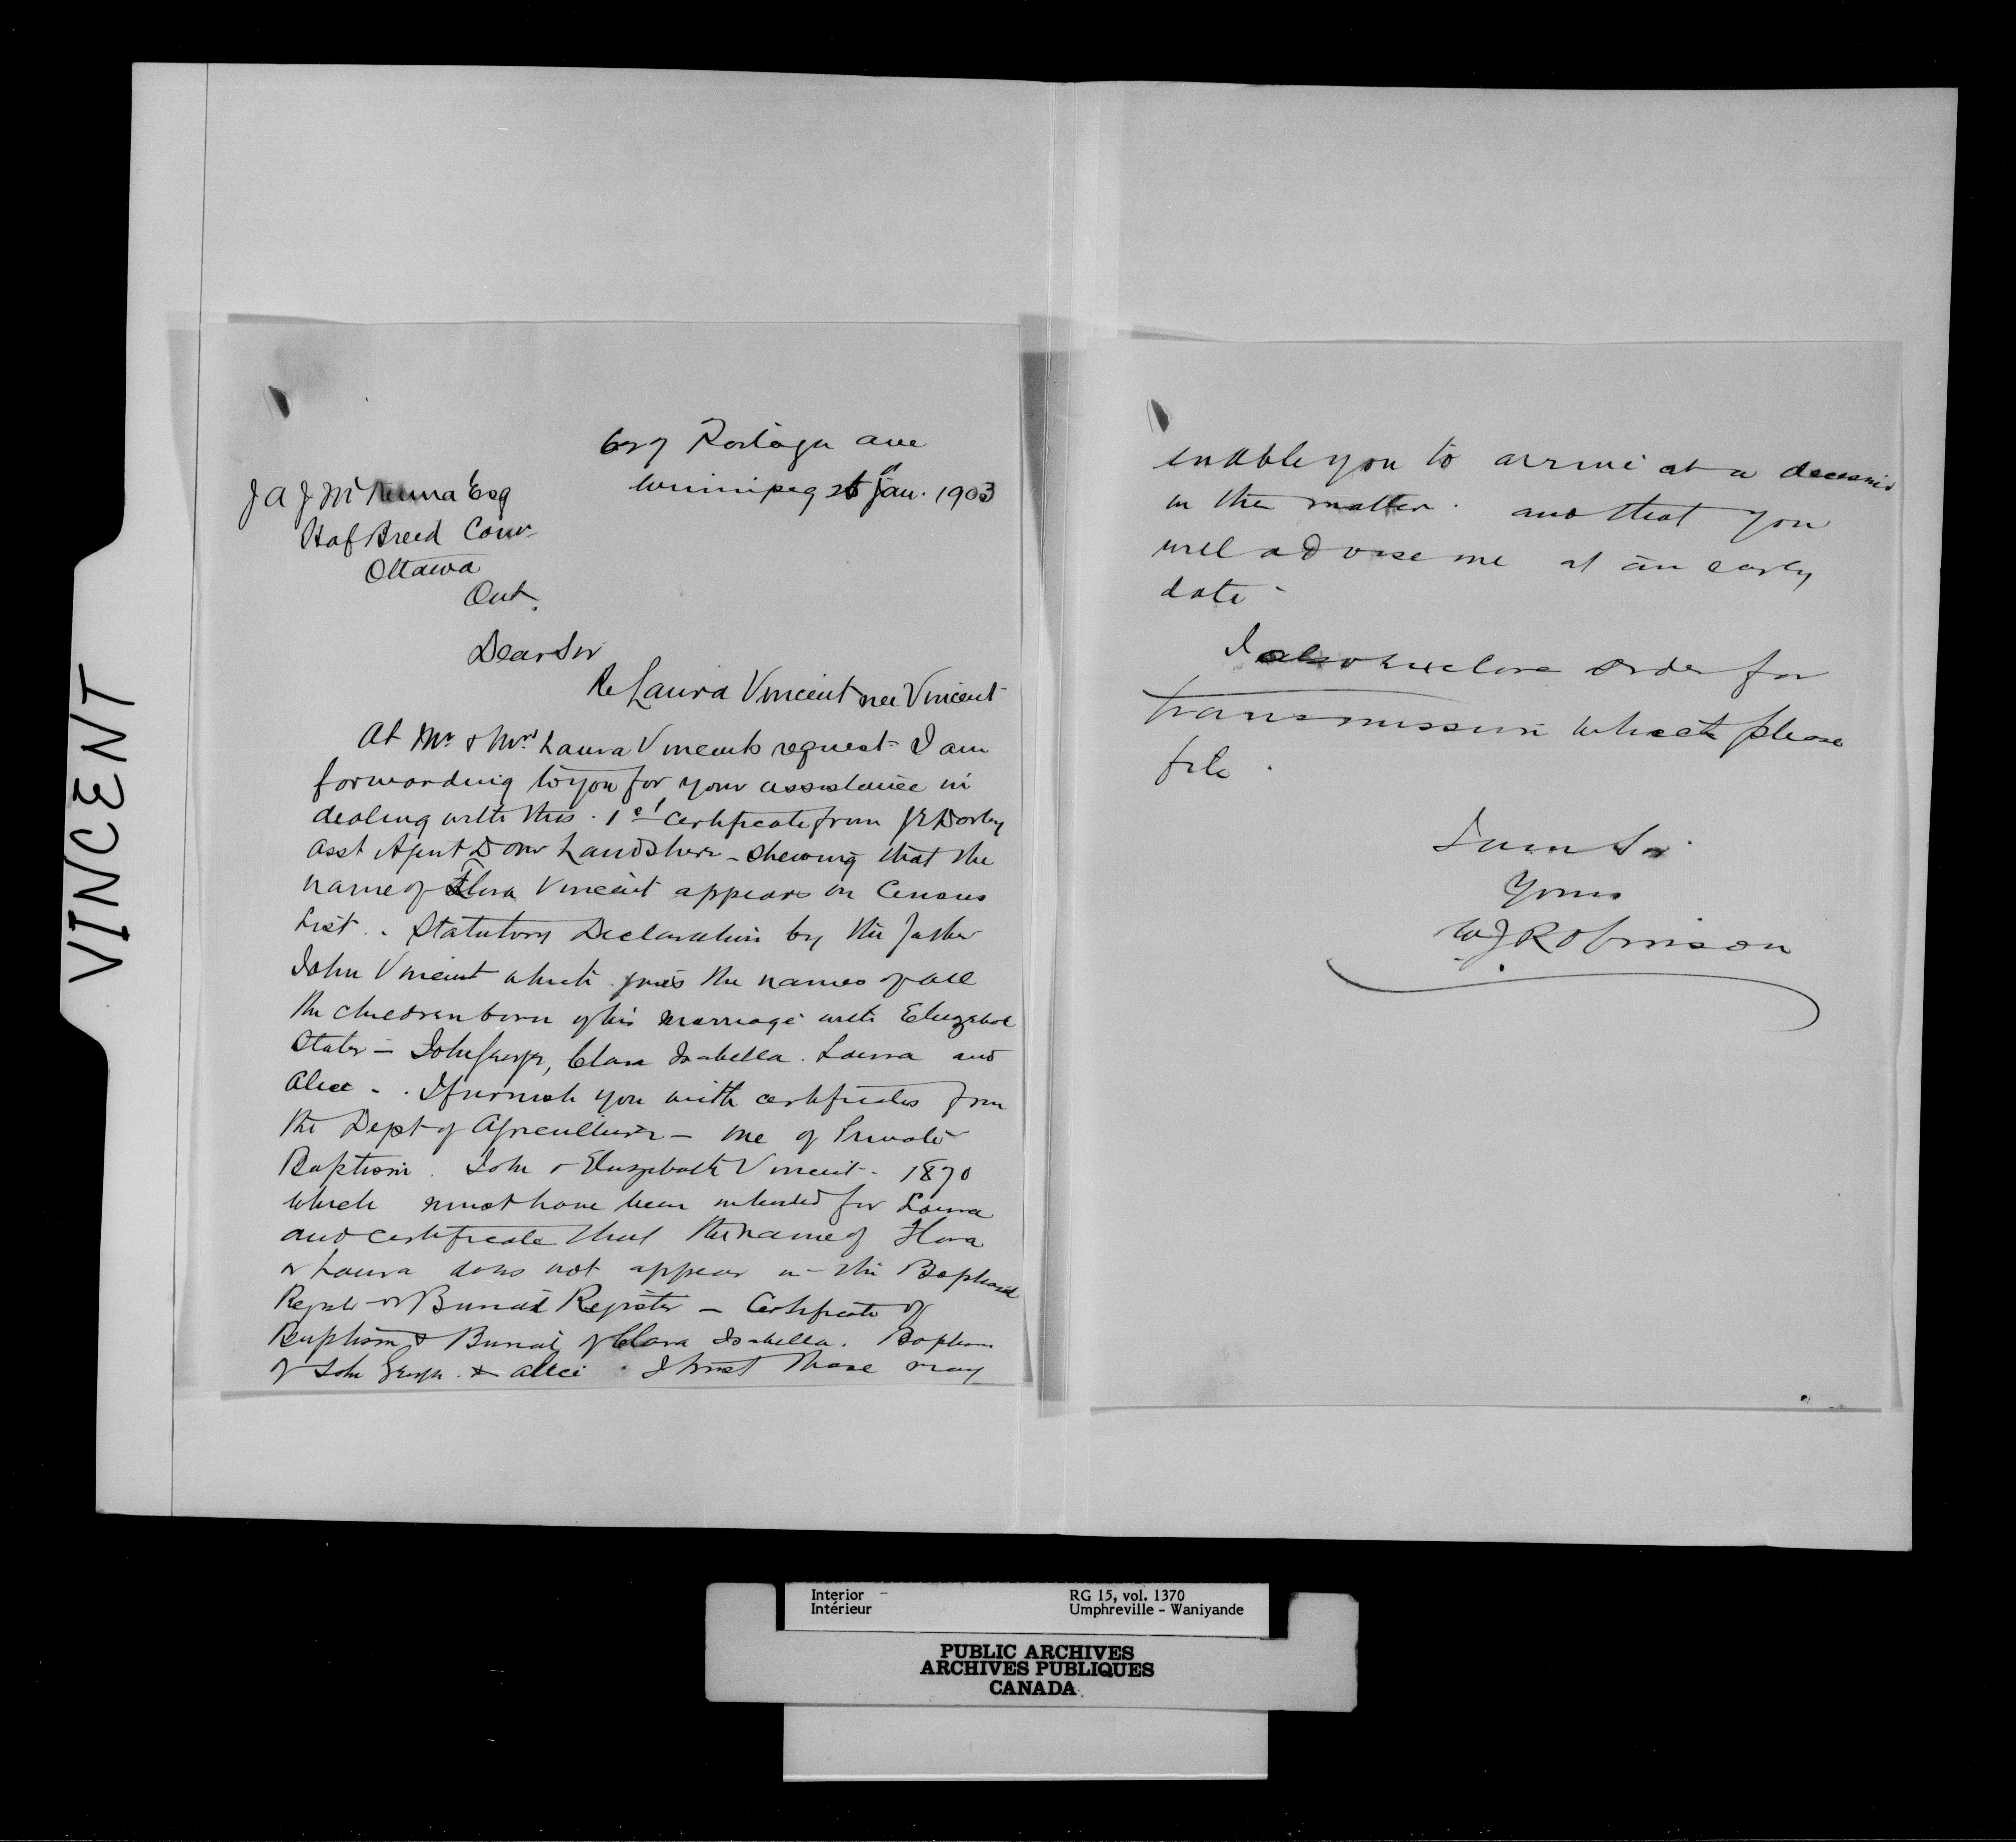 VINCENT
Portage Ave
Winnipeg 26th Jan. 1903
J A J McKenna Esq
Haf Breed Comr
Ottawa
Ont.
Dear Sir
Re Laura Vincent nee Vincent
At Mr & Mrs Laura Vincents request I am
forwarding to you for your assistance in
dealing with this. 1st Certificate from
Asst Agent Dom Lands here - shewing that the
name of Flora Vincent appears on Census
List. - Statutory Declaration by the father
John Vincent which gives the names of all
the children born of his marriage with Elizabeth
Slater - John George, Clara Isabella. Laura and
Alice - . I furnish you with certificates from
the Dept of Agriculture - one of Private
Baptism. John & Elizabeth Vincent - 1870
which must have been intended for Laura
and certificate that the name of Flora
or Laura does not appear in the Baptismal
Register or Burial Register - Certificate of
Baptism & Burial of Clara Isabella. Baptism
of John George & Alice. I trust these may
enable you to arrive at a decision
in the matter. and that you
will advise me at an early
date -
I also enclose order for
transmission which please
file.
I am Sir
Yours
W J Robinson
Interior
Intérieur
RG 15, vol. 1370
Umphreville - Waniyande
PUBLIC ARCHIVES
ARCHIVES PUBLIQUES
CANADA